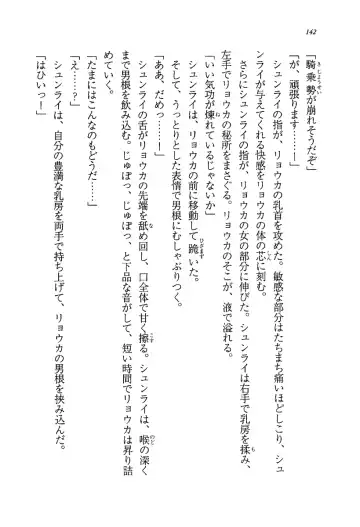 142
「騎乗勢が崩れそうだぞ」
「が、頑張ります……」
シュンライの指が、リョウカの乳首を攻めた。敏感な部分はたちまち痛いほどしこり、シュ
ンライが与えてくれる快感をリョウカの体の芯に刻む。
さらにシュンライの指が、リョウカの女の部分に伸びた。シュンライは右手で乳房を揉み、
左手でリョウカの秘所をまさぐる。リョウカのそこが、液で溢れる。
「いい気功が練れているじゃないか」
シュンライは、リョウカの前に移動して跪いた。
そして、うっとりとした表情で男根にむしゃぶりつく。
「ああ、だめっ……！」
シュンライの舌がリョウカの先端を舐め回し、口全体で甘く擦る。シュンライは、喉の深く
まで男根を飲み込む。じゅぽっ、じゅぽっ、と下品な音がして、短い時間でリョウカは昇り詰
めていく。
「たまにはこんなのもどうだ……」
「え……？」
シュンライは、自分の豊満な乳房を両手で持ち上げて、リョウカの男根を挟み込んだ。
「はひいっ！」